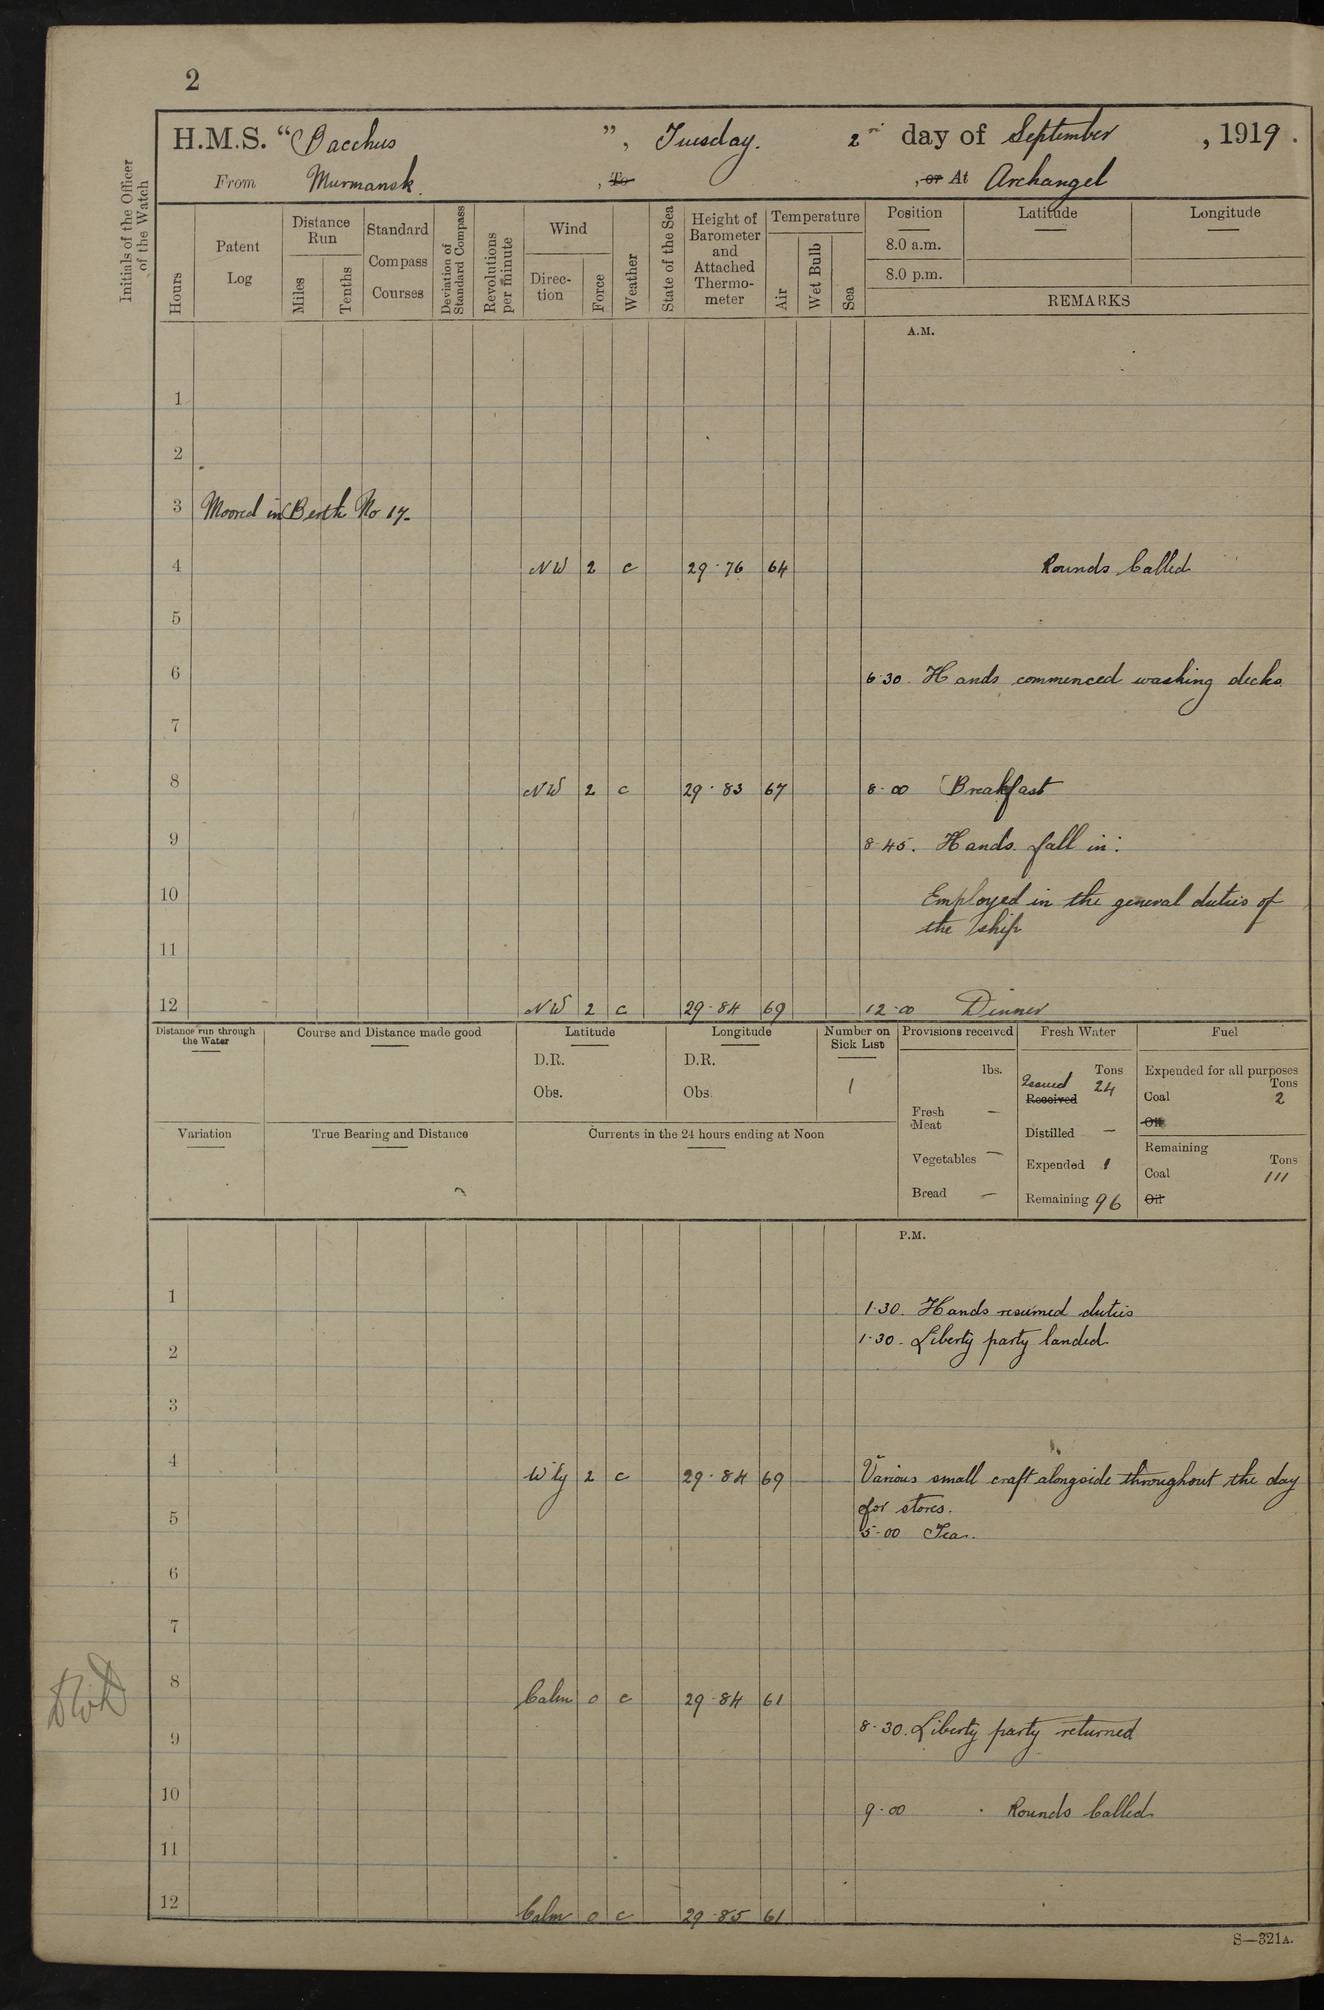 2
H.M.S. "Bacchus", Tuesday. 2nd day of September, 1919.
From Murmansk., To , or At Archangel
Initials of the Officer of the Watch
Hours
Patent Log
Distance Run
Miles
Tenths
Standard Compass Courses
Deviation of Standard Compass
Revolutions per minute
Wind
Direction
Force
Weather
State of the Sea
Height of Barometer and Attached Thermometer
Temperature
Air
Wet Bulb
Sea
Position Latitude Longitude
8.0 a.m.
8.0 p.m.
REMARKS
A.M.
1
2
3 Moored in Berth No 17.
4 NW 2 c 29.76 64 Rounds Called
5
6 6.30. Hands commenced washing decks
7
8 NW 2 c 29.83 67 8.00 Breakfast
9 8.45. Hands fall in:
10 Employed in the general duties of
the ship
11
12 NW 2 c 29.84 69 12.00 Dinner
Distance run through the Water
Course and Distance made good
Latitude
D.R.
Obs.
Longitude
D.R.
Obs.
Number on Sick List
1
Provisions received
lbs.
Fresh Meat —
Vegetables —
Bread —
Fresh Water
Tons
Issued 24
Received
Distilled —
Expended 1
Remaining 96
Fuel
Expended for all purposes
Tons
Coal 2
Oil
Remaining
Tons
Coal 111
Oil
Variation
True Bearing and Distance
Currents in the 24 hours ending at Noon
P.M.
1 1.30. Hands resumed duties
2 1.30. Liberty party landed
3
4 W'ly 2 c 29.84 69 Various small craft alongside throughout the day
for stores.
5 5.00 Tea.
6
7
8 Calm 0 c 29.84 61
9 8.30. Liberty party returned
10 9.00 Rounds Called
11
12 Calm 0 c 29.85 61
S—321A.